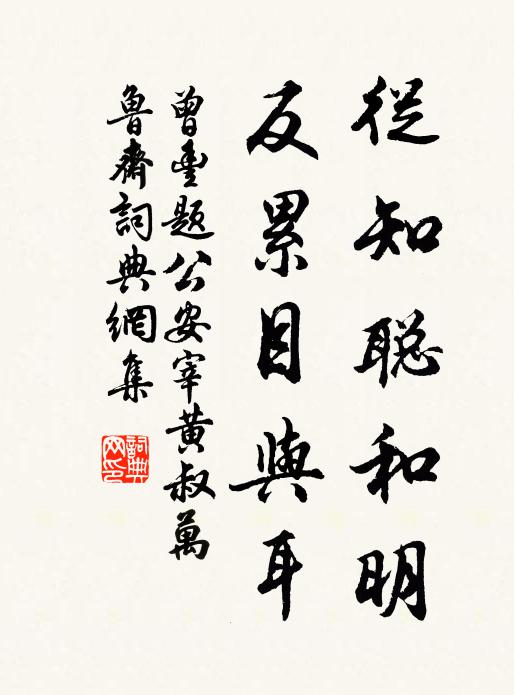 從知聡和明
反累目與耳
曾豊題公安宰黄叔萬
魯齋詞典網集
詞典网印